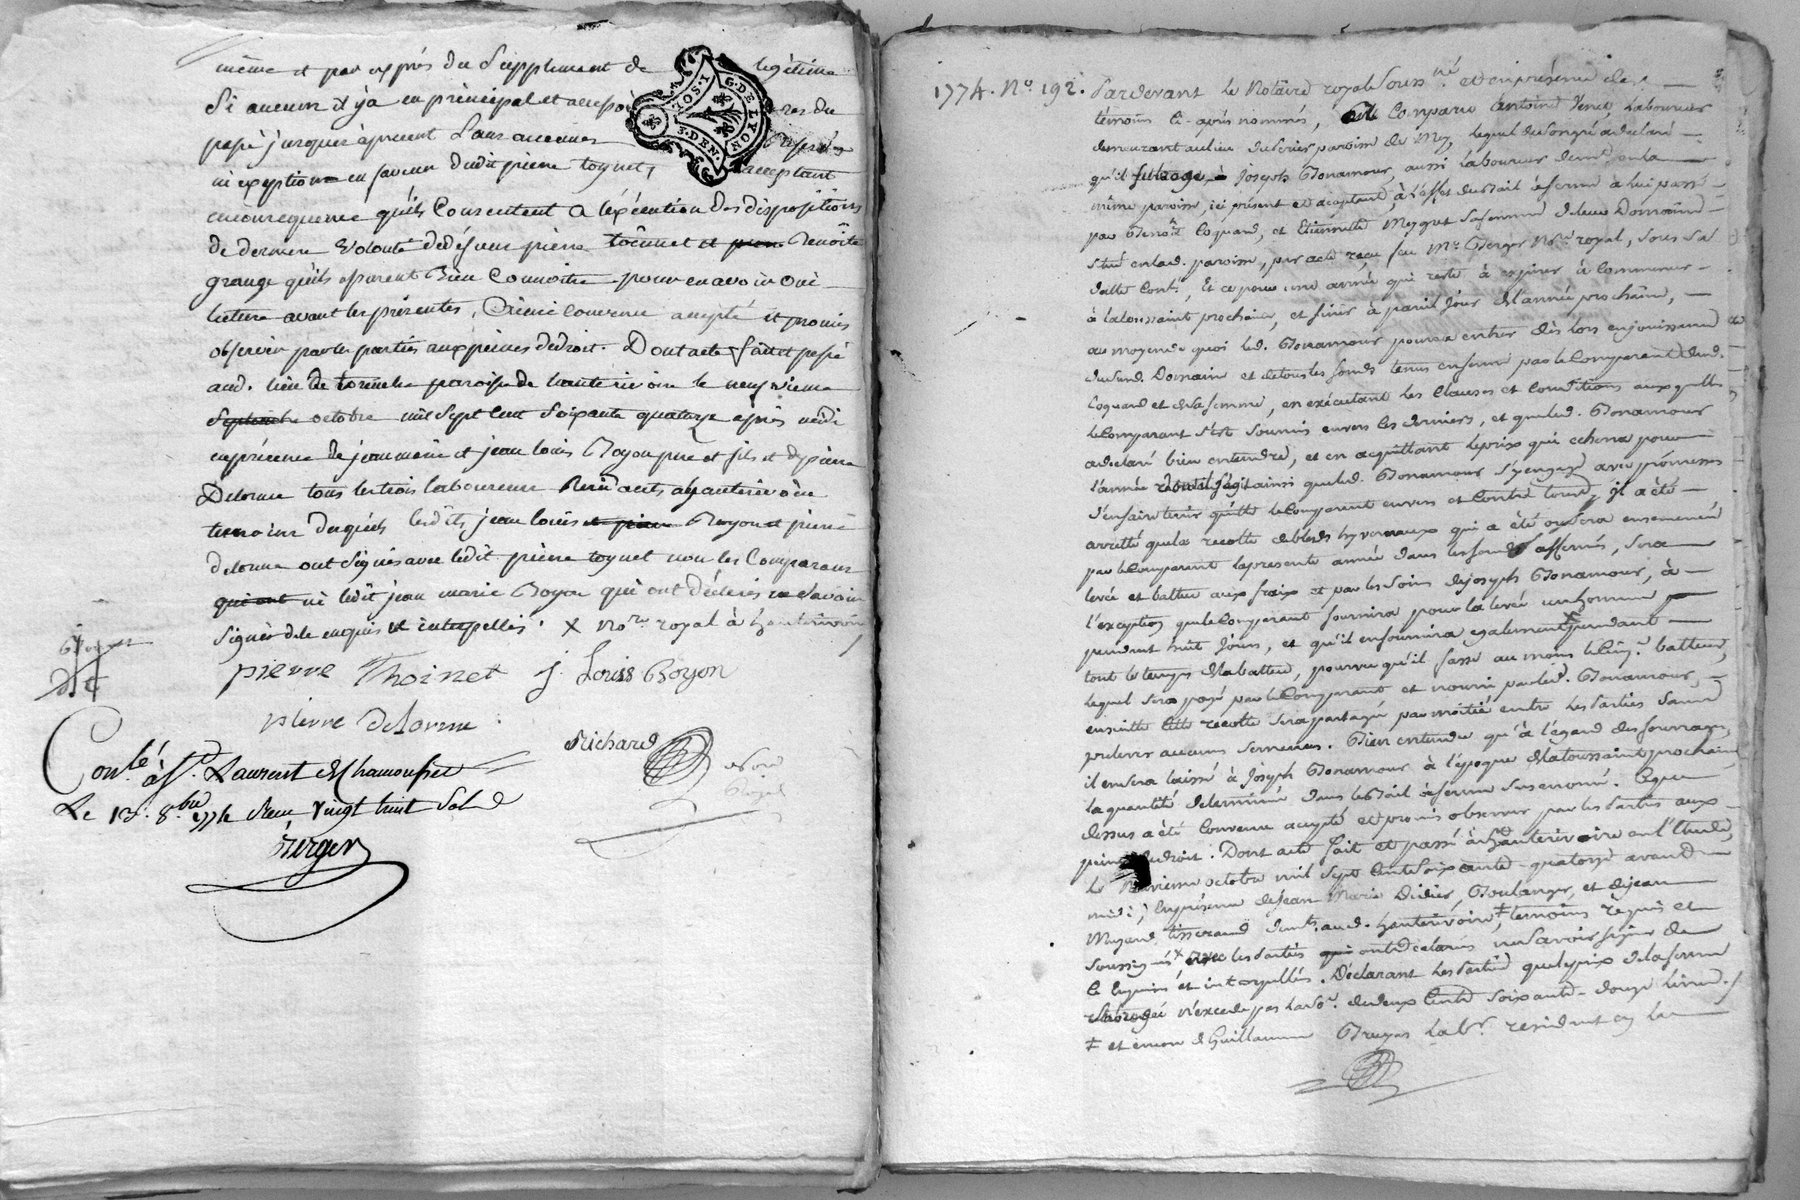 même et par exprès du Supplement de légitime
Si aucun il y a en principal et accessoires du
passé jusques à présent Sans aucunes
ni exption en faveur dudit pierre toynet, acceptant
enconsequence qu'ils Consentent a l'exécution des dispositions
de derniere Volonté dedéfunt pierre Benoîte
grange qu'ils assurent Bien Connoitre pour en avoir oui
lecture avant les présentes, Ainsi convenu accepté et promis
observer par les parties aux peines de droit. Dont acte fait et passé
aud. lieu de paroisse de hauterivoire le neufvieme
Septembre octobre mil Sept Cent Soixante quatorze après midi
en présence de jean marie et jean louis Boyon pere et fils et de pierre
Delorme tous les trois laboureurs Residants à hauterivoire
temoins desquels lesdits jean louis et pierre Boyon et pierre
delorme ont Signés avec ledit pierre toynet non les Comparans
qui ont ni ledit jean marie Boyon qui ont déclarés ne Savoir
Signer de ce enquis et interpellés. x No.re royal à hauterivoire
pierre Thoinet j. Louis Boyon
pierre delorme
Richard
Con.lé à S.t Laurent de Chamousset
Le 13. 8.bre 1774 Reçu Vingt huit Sols
Berger
G. DE LYON
3. DEN.
1774. N.o 192. Pardevant le Notaire royal Souss.né et en présence des
témoins Ci-après nommés, Comparu Antoine Venet, Laboureur
demeurant au lieu paroisse de lequel de son gré a déclaré
qu'il à Joseph Bonamour, aussi Laboureur dem.t en la
même paroisse, ici présent et acceptant à l'effet du Bail à ferme à lui passé
par Benoît Coquard, et Etiennette Meygret Sa femme de leur Domaine
Situé en lad. paroisse, par acte reçu feu M.e Berger No.re royal, Sous Sa
datte Cont. Et ce pour une année qui reste à expirer à Commencer
à la toussaint prochaine, et finir à pareil Jour de l'année prochaine,
au moyen de quoi led. Bonamour pourra entrer dès lors en jouissance
dudit Domaine et de tous les fonds tenus en ferme par le Comparant dud.
Coquard et de Sa femme, en exécutant les Clauses et Conditions auxquelles
le Comparant s'est Soumis envers les derniers, et que led. Bonamour
a déclaré bien entendre, et en acquittant le prix qui echera pour
l'année ainsi que led. Bonamour S'y engage avec promesses
d'en faire tenir quitte le Comparant envers et Contre tous, il a été
arretté que la recolte de bleds hyvernaux qui a été ou Sera ensemencée
par le Comparant la presente année dans les fonds affermés, Sera
levée et battue aux fraix et par les Soins de Joseph Bonamour, à
l'exception que le Comparant fournira pour la levée un homme
pendant huit Jours, et qu'il en fournira egalement un pendant
tout le temps de la batture, pourvu qu'il fasse au moins le Cinq.e batteur,
lequel Sera payé par le Comparant et nourri par led. Bonamour,
ensuitte Cette recolte Sera partagée par moitié entre les Parties Sans
prelever aucunes Semences. Bien entendu qu'à l'égard des fourrages,
il en Sera laissé à Joseph Bonamour à l'époque de la toussaint prochaine
la quantité determinée dans le Bail à ferme Sus enoncé. Ce que
dessus a été Convenu accepté et promis observer par les Parties aux
peines de droit. Dont acte fait et passé à hauterivoire en l'étude,
le neuvieme octobre mil Sept Cent Soixante-quatorze avant
midi, En présence de Jean Marie Didier, Boulanger, et de Jean
tisserand dem.ts aud. hauterivoire, ‡ témoins requis et
Soussignés x avec les Parties qui ont déclarés ne Savoir Signer de
ce Enquis et interpellés. Déclarant les Parties que le prix de la ferme
n'excede pas la So.e de deux Cents Soixante-douze livres.
‡ et encore de Guillaume Bruyas Lab.r residant en la